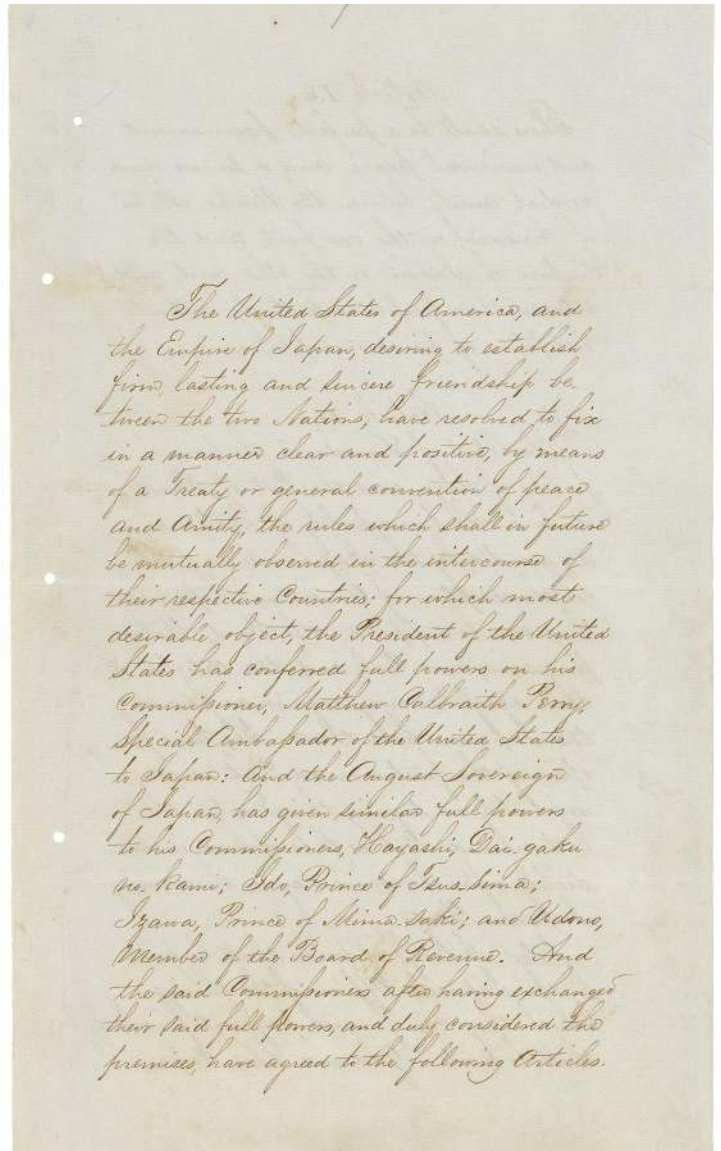 The United States of America, and
the Empire of Japan, desiring to establish
firm, lasting and sincere friendship be-
tween the two Nations, have resolved to fix
in a manner clear and positive, by means
of a Treaty or general convention of peace
and Amity, the rules which shall in future
be mutually observed in the intercourse of
their respective Countries; for which most
desirable object, the President of the United
States has conferred full powers on his
Commissioner, Matthew Calbraith Perry,
Special Ambassador of the United States
to Japan: And the August Sovereign
of Japan, has given similar full powers
to his Commissioners, Hayashi, Dai-gaku
no-kami; Ido, Prince of Tsus-Sima;
Izawa, Prince of Mima-saki; and Udono,
Member of the Board of Revenue. And
the said Commissioners after having exchanged
their said full powers, and duly considered the
premises, have agreed to the following Articles.